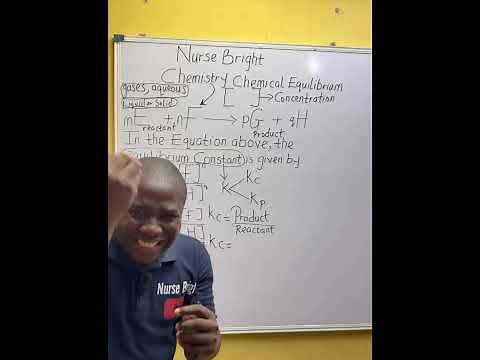 Nurse Bright
Chemistry Chemical Equilibrium
gases, aqueous
[ ] → Concentration
Liquid or Solid
mE + nF → pG + qH
reactant product
In the Equation above, the
Equilibrium Constant is given by
K
Kc
Kp
Kc = Product
Reactant
Kc =
Nurse